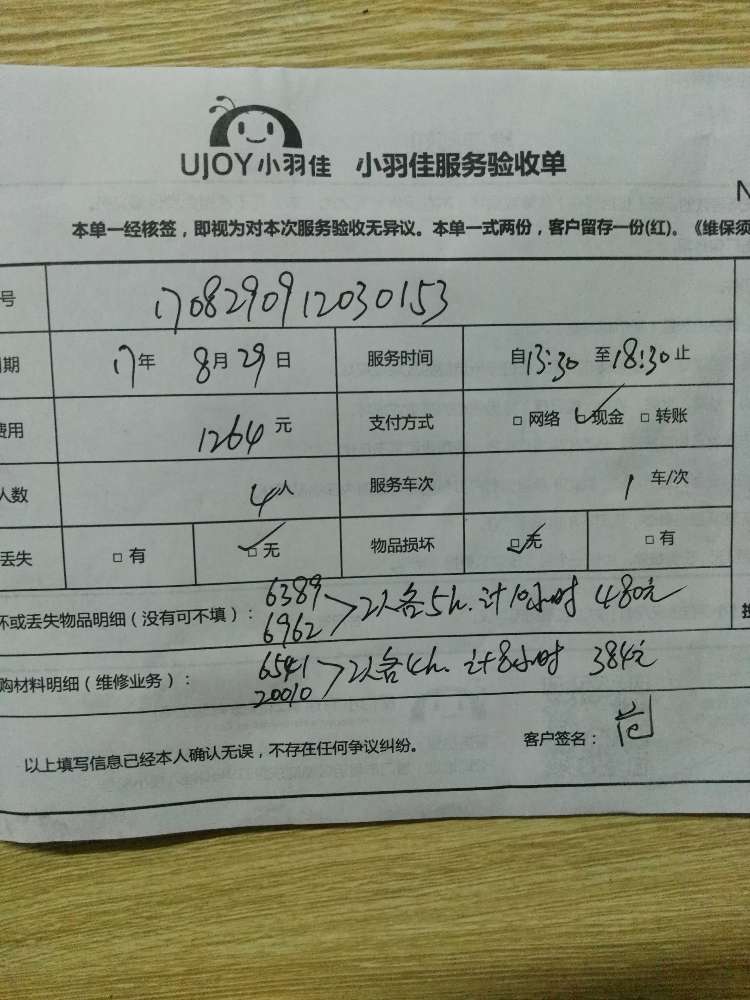 UJOY小羽佳 小羽佳服务验收单
N
本单一经核签，即视为对本次服务验收无异议。本单一式两份，客户留存一份(红)。《维保须
号 170829091203 0153
期 17年 8月29日 服务时间 自13:30 至18:30止
费用 1264元 支付方式 □网络 □现金 □转账
人数 4人 服务车次 1 车/次
丢失 □有 □无 物品损坏 □无 □有
坏或丢失物品明细（没有可不填）： 6389 6962 >2人各5h.计10小时 480元
购材料明细（维修业务）： 6541 20010 >2人各4h.计8小时 384元
以上填写信息已经本人确认无误，不存在任何争议纠纷。 客户签名：